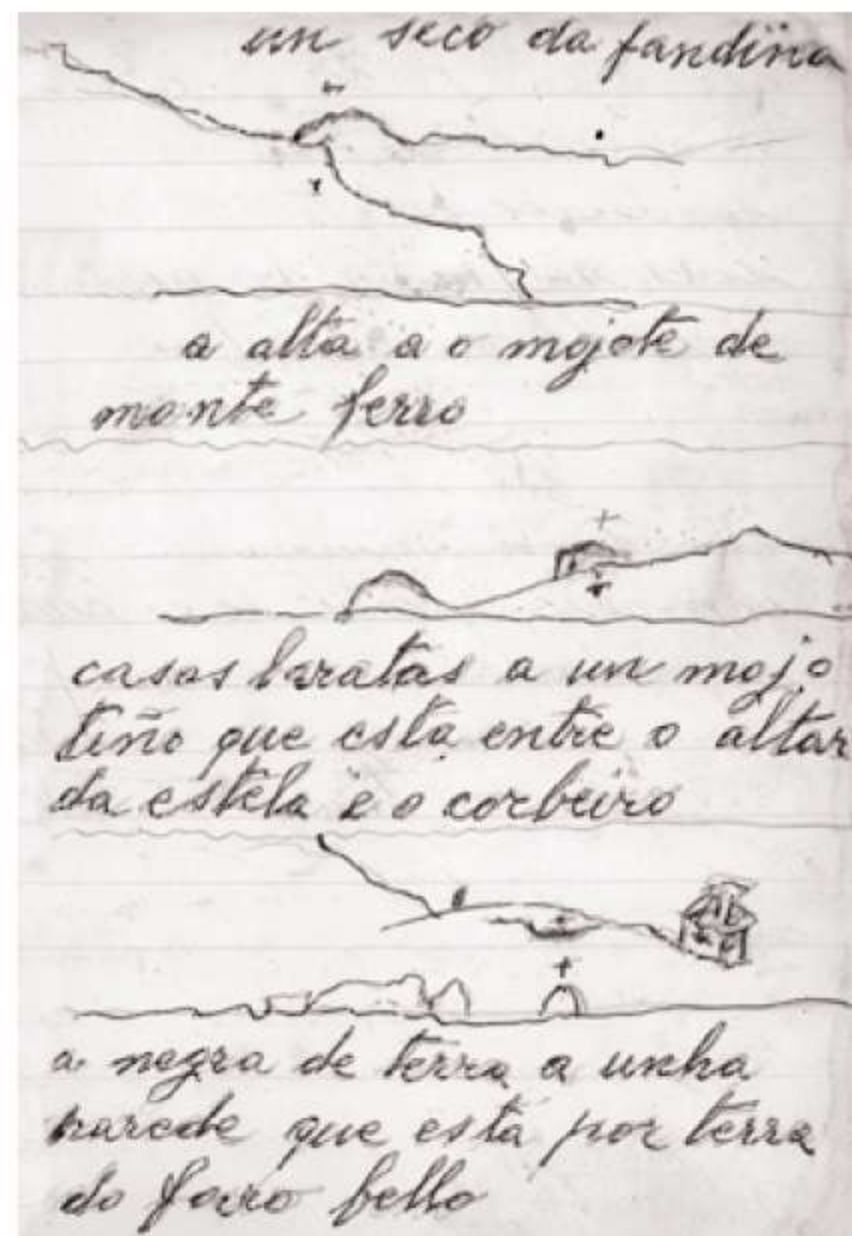 un seco da fandiña
a alta a o mojote de
monte ferro
casas baratas a un mojo
tiño que esta entre o altar
da estela e o corbeiro
a negra de terra a unha
parede que está por terra
do faro bello